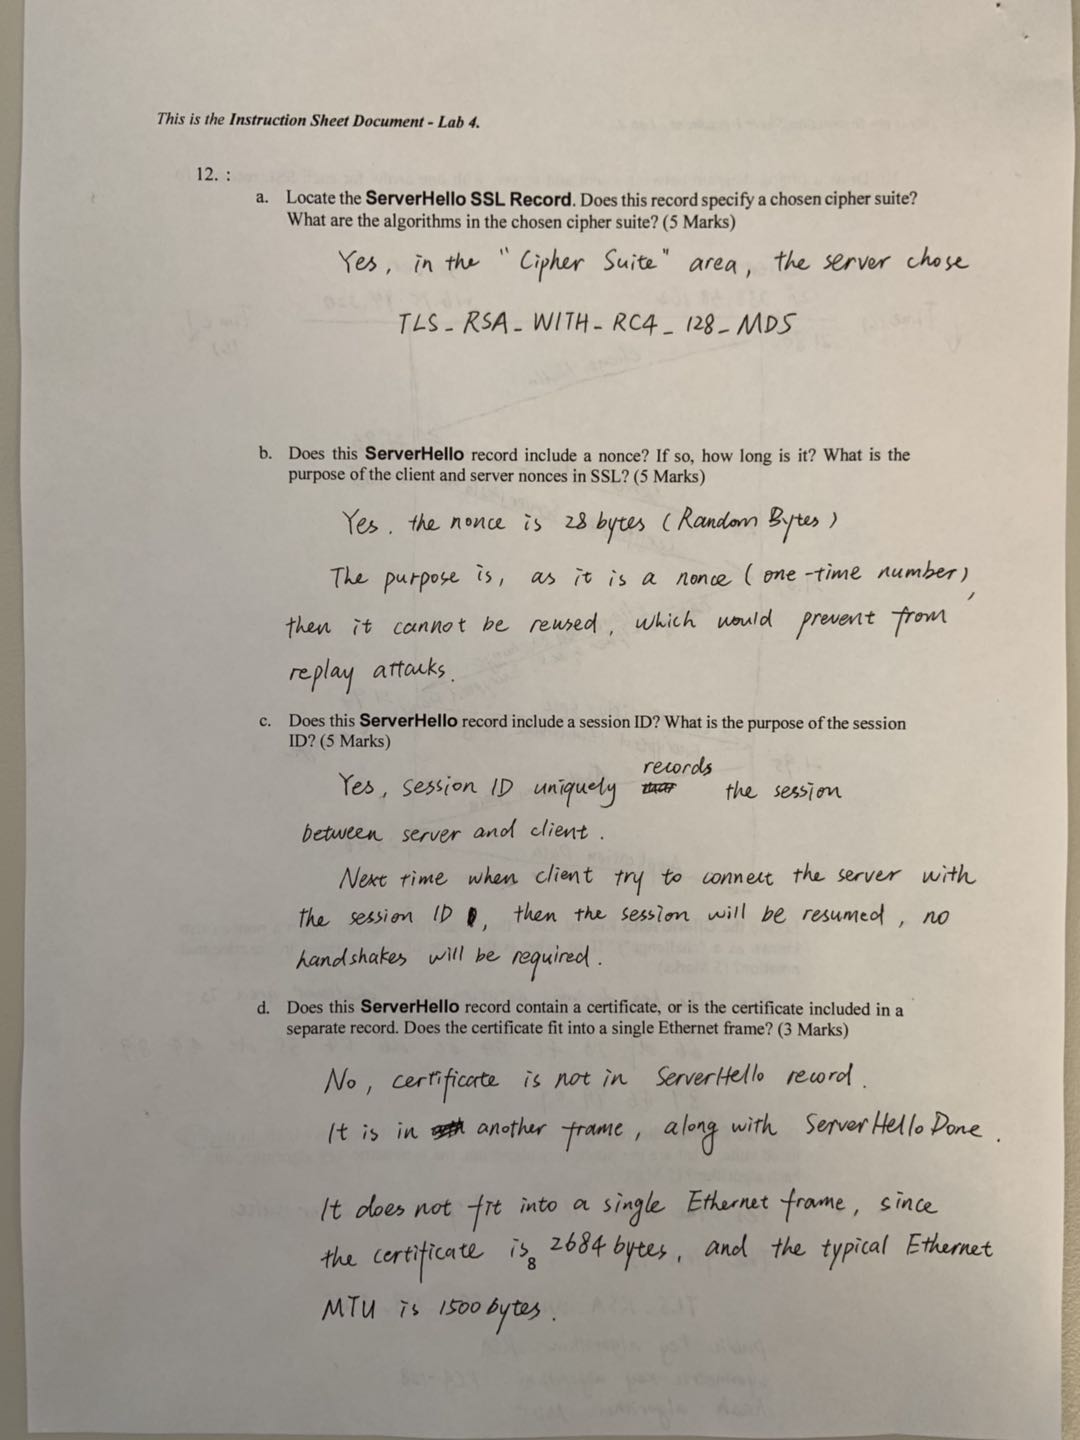 This is the Instruction Sheet Document - Lab 4.
12. :
a. Locate the ServerHello SSL Record. Does this record specify a chosen cipher suite?
What are the algorithms in the chosen cipher suite? (5 Marks)
Yes, in the "Cipher Suite" area, the server chose
TLS_RSA_WITH_RC4_128_MD5
b. Does this ServerHello record include a nonce? If so, how long is it? What is the
purpose of the client and server nonces in SSL? (5 Marks)
Yes. the nonce is 28 bytes (Random Bytes)
The purpose is, as it is a nonce (one-time number),
then it cannot be reused, which would prevent from
replay attacks.
c. Does this ServerHello record include a session ID? What is the purpose of the session
ID? (5 Marks)
Yes, session ID uniquely records the session
between server and client.
Next time when client try to connect the server with
the session ID, then the session will be resumed, no
handshakes will be required.
d. Does this ServerHello record contain a certificate, or is the certificate included in a
separate record. Does the certificate fit into a single Ethernet frame? (3 Marks)
No, certificate is not in ServerHello record.
It is in another frame, along with ServerHello Done.
It does not fit into a single Ethernet frame, since
the certificate is 2684 bytes, and the typical Ethernet
8
MTU is 1500 bytes.